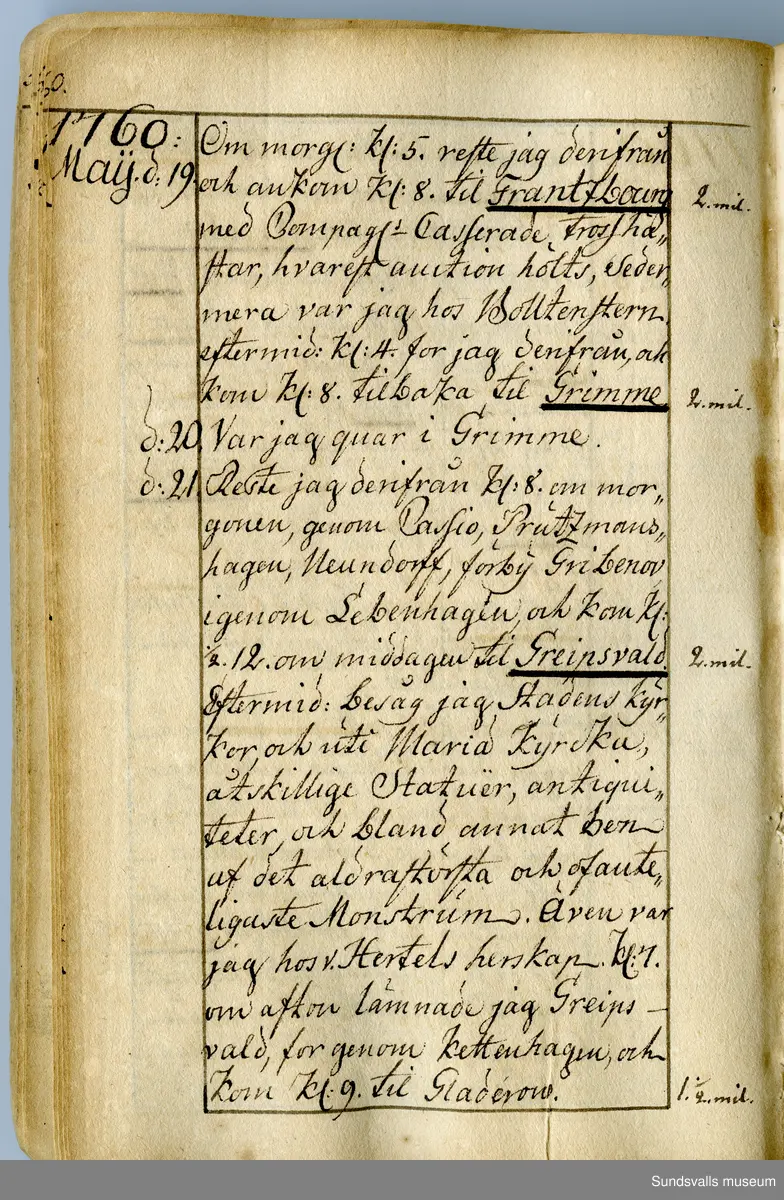 1760:
Maÿ. d: 19. Om morg: kl: 5. reste jag derifrån
och ankom kl: 8. til Frantzbourg 2. mil.
med Compag: Casserade trosshä„
star, hvarest auction hölts, Seder„
mera var jag hos Wolttenstern
eftermid: kl: 4. for jag derifrån, och
kom kl: 8. tilbaka til Grimme 2. mil.
d: 20. Var jag quar i Grimme.
d: 21. Reste jag derifrån kl: 8. om mor„
gonen, genom Passio, Prützmans„
hagen, Neundorff, förbÿ Gribenov
igenom Lebenhagen, och kom kl:
½. 12. om middagen til Greipsvald. 2. mil.
Eftermid: besåg jag Stadens kÿr„
kor, och uti Maria Kÿrcka,
åtskillige Statuër, antiqui„
teter, och bland annat ben
af det aldrastörsta och ofante„
ligaste Monstrum. Även var
jag hos v. Hertels herskap. kl: 7.
om afton lämnade jag Greips–
vald, for genom Kettenhagen, och
kom kl: 9. til Gladerow. 1. ½. mil.
Sundsvalls museum